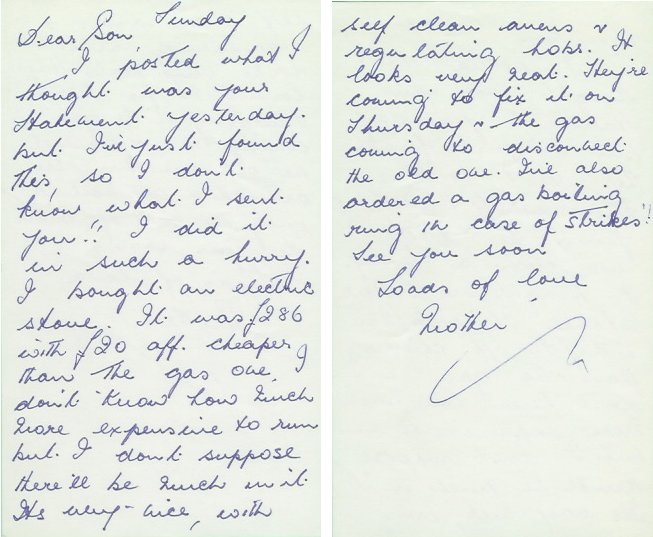 Sunday
Dear Son
I posted what I
thought was your
statement yesterday.
but I've just found
this, so I don't
know what I sent
you!! I did it
in such a hurry.
I bought an electric
stove. It was £286
with £20 off. cheaper
than the gas one, I
don't know how much
more expensive to run
but I don't suppose
there'll be much in it
Its very nice, with
self clean ovens &
regulating hobs. It
looks very neat. They're
coming to fix it on
Thursday & the gas
coming to disconnect
the old one. I've also
ordered a gas boiling
ring in case of strikes!!
See you soon
Loads of love
Mother